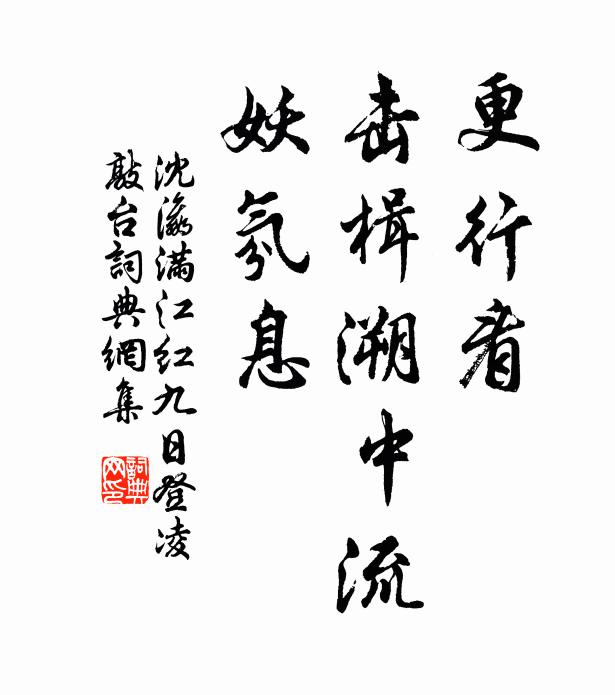 更行看
击楫溯中流
妖氛息
沈瀛满江红九日登凌
敲台詞典網集
詞典
网印